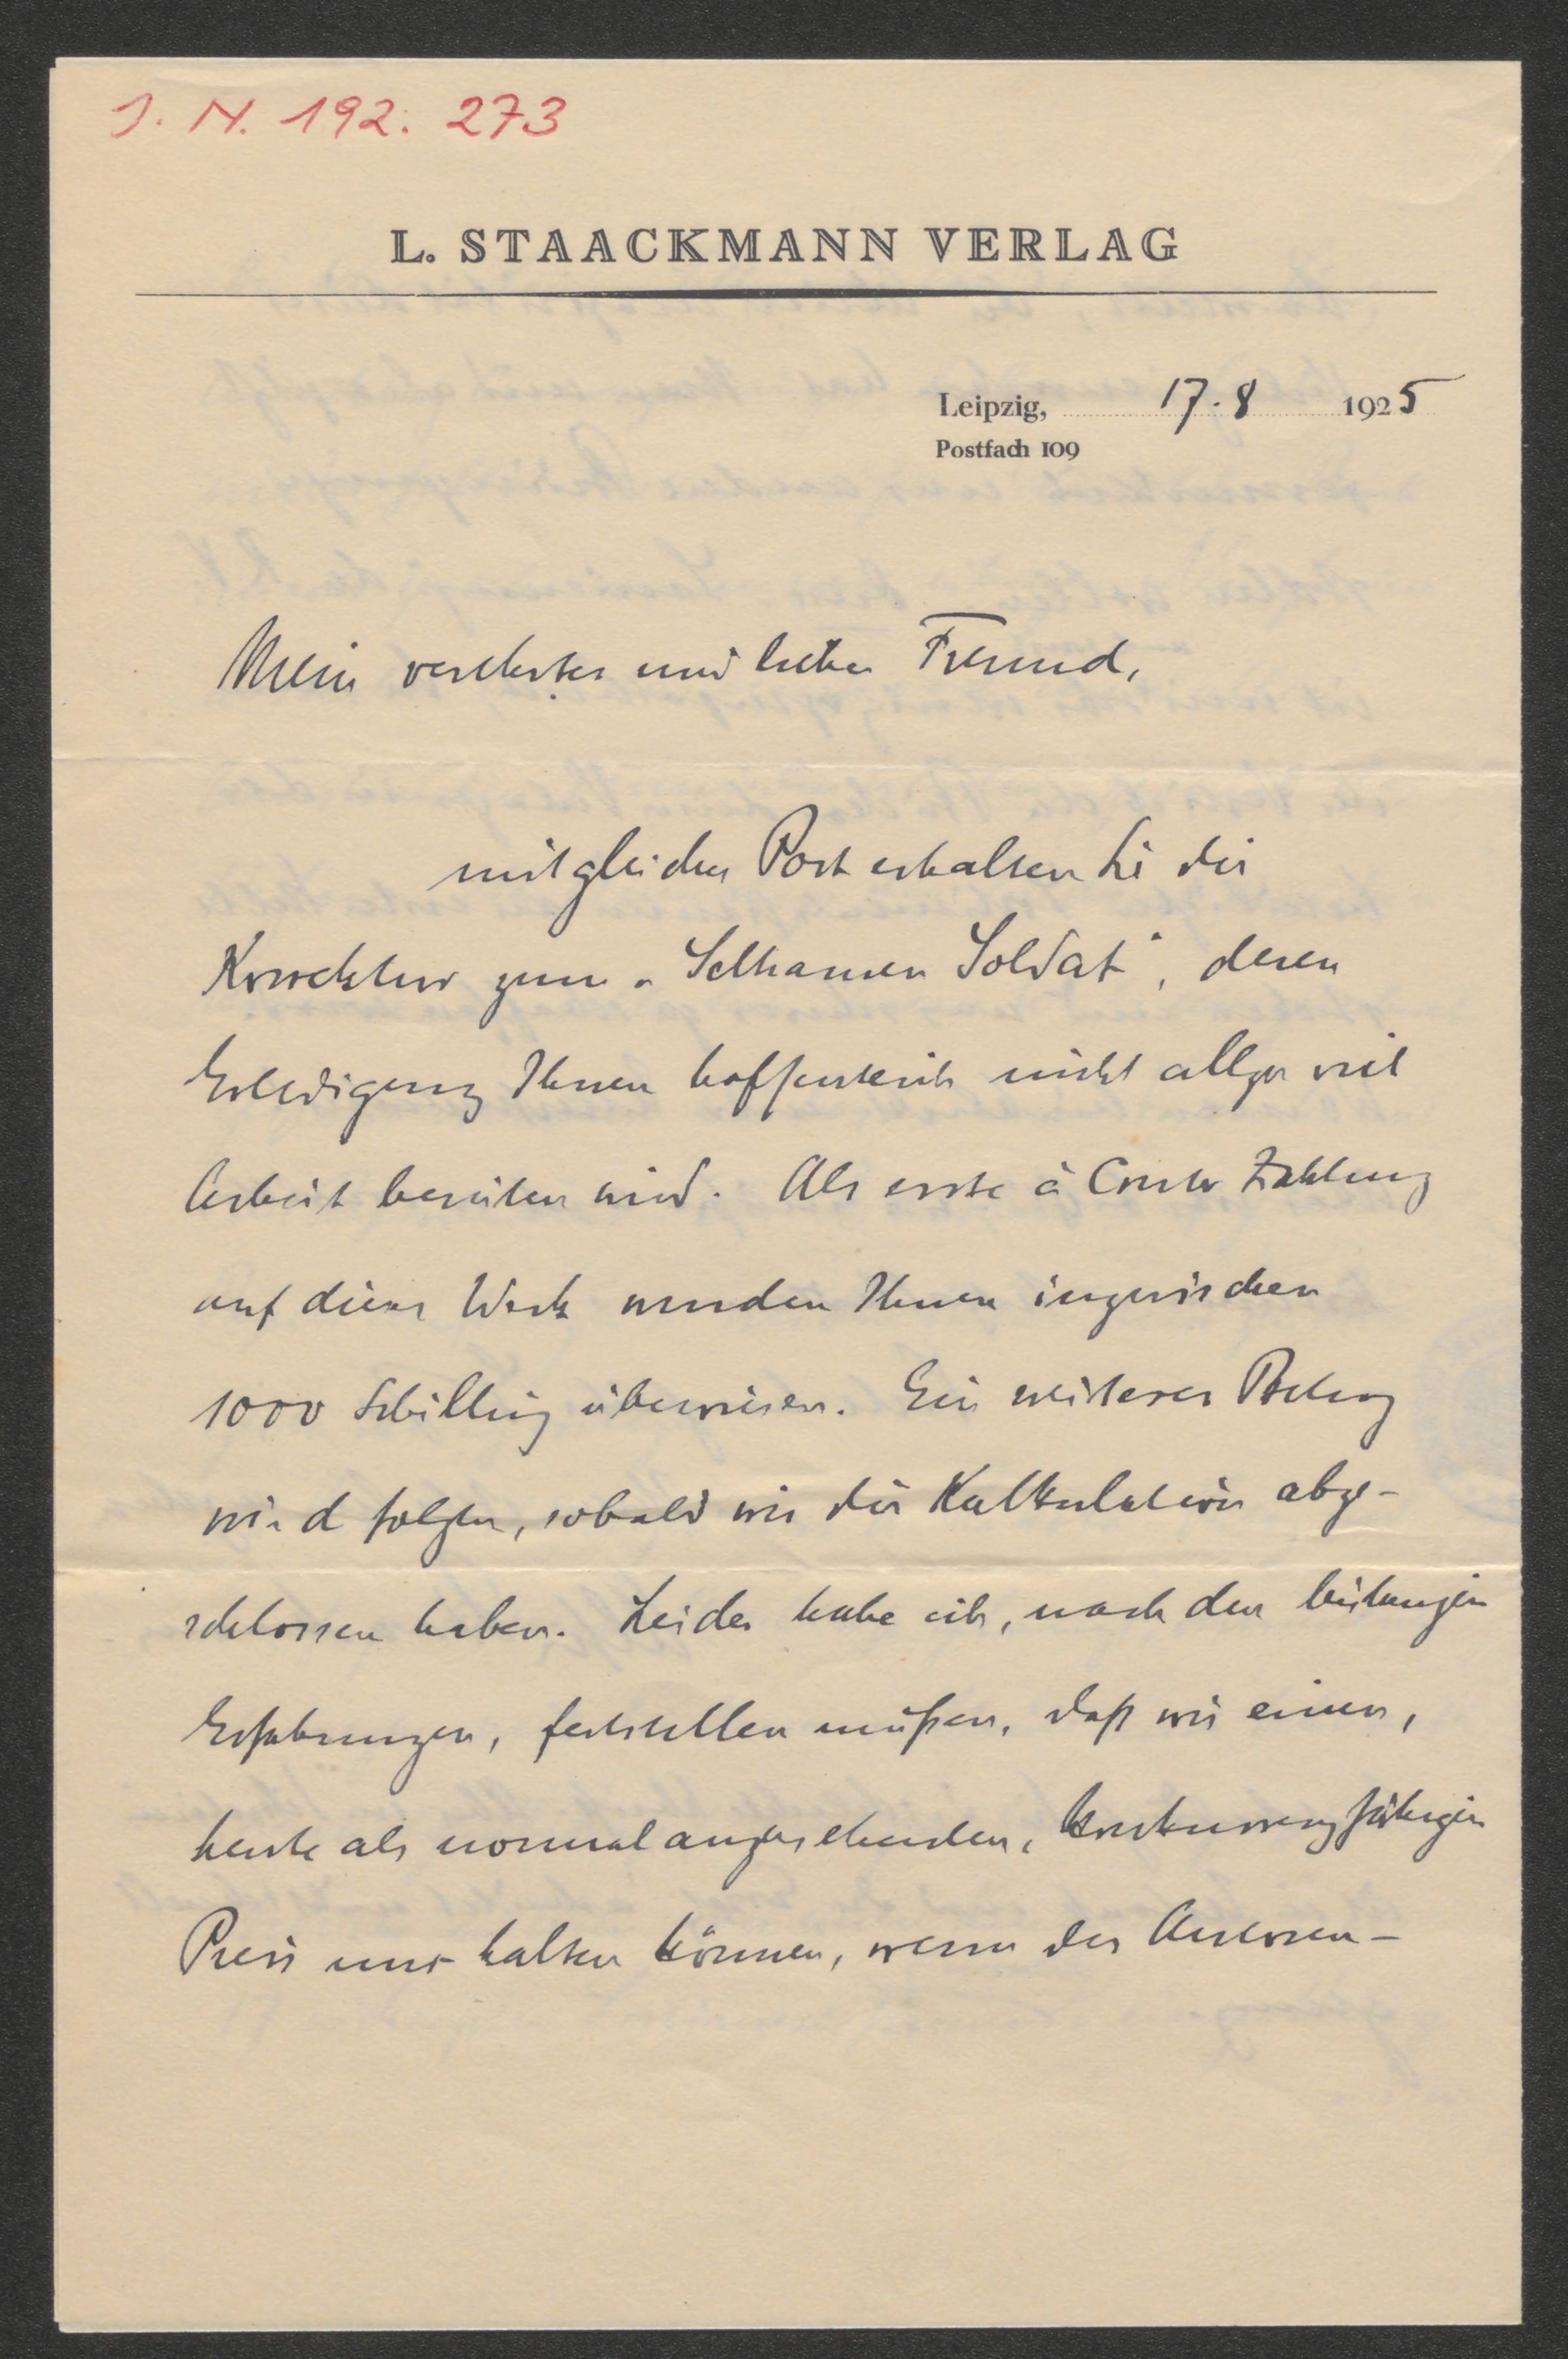 J. N. 192. 273
L. STAACKMANN VERLAG
Leipzig, 17. 8 1925
Postfach 109
Mein verehrter und lieber Freund,
mit gleicher Post erhalten Sie die
Korrektur zum „Seltsamen Soldat", deren
Erledigung Ihnen hoffentlich nicht allzu viel
Arbeit bereiten wird. Als erste à Conto Zahlung
auf dieses Werk wurden Ihnen inzwischen
1000 Schilling überwiesen. Ein weiterer Betrag
wird folgen, sobald wir die Kalkulation abge-
schlossen haben. Leider habe ich, nach den bislangen
Erfahrungen, feststellen müßen, daß wir einen,
heute als normal anzusehenden, konkurrenzfähigen
Preis nur halten können, wenn das Autoren-